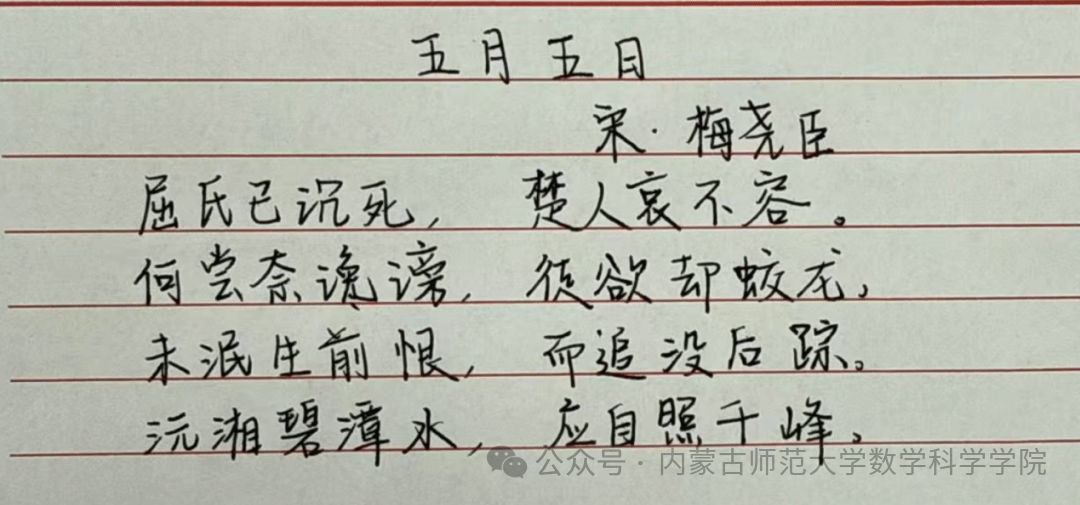 五月五日
宋·梅尧臣
屈氏已沉死, 楚人哀不容。
何尝奈谗谤, 徒欲却蛟龙,
未泯生前恨, 而追没后踪。
沅湘碧潭水, 应自照千峰。
公众号·内蒙古师范大学数学科学学院